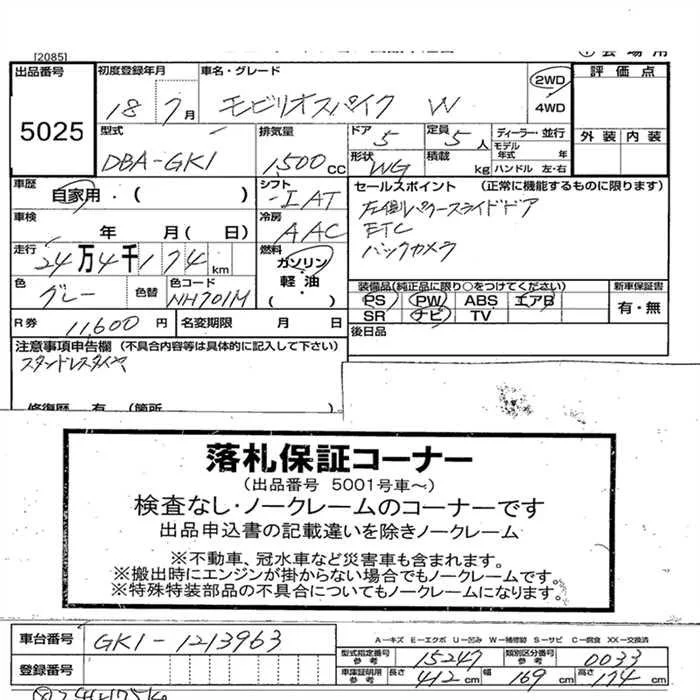 [2085]
出品番号 5025
初度登録年月 18 7月
車名・グレード モビリオスパイク W
2WD
4WD
評価点
外装 内装
型式 DBA-GK1
排気量 1,500cc
ドア 5
定員 5人
形状 WG
積載 kg
ディーラー・並行
モデル年式 年
ハンドル 左・右
車歴 自家用・( )
シフト IAT
セールスポイント (正常に機能するものに限ります)
左側パワースライドドア
ETC
バックカメラ
車検 年 月( 日)
冷房 AAC
走行 24万4千174km
燃料 ガソリン・軽油
色 グレー
色替
色コード NH701M
装備品(純正品に限り○をつけてください)
PS PW ABS エアB
SR ナビ TV
新車保証書 有・無
R券 11,600円
名変期限 月 日
後日品
注意事項申告欄 (不具合内容等は具体的に記入して下さい)
修復歴 有 (箇所 )
落札保証コーナー
(出品番号 5001号車~)
検査なし・ノークレームのコーナーです
出品申込書の記載違いを除きノークレーム
※不動車、冠水車など災害車も含まれます。
※搬出時にエンジンが掛からない場合でもノークレームです。
※特殊特装部品の不具合についてもノークレームになります。
車台番号 GK1-1213963
登録番号
A-キズ E-エクボ U-凹み W-補修跡 S-サビ C-腐食 XX-交換済
型式指定番号 参考 15247
類別区分番号 参考 0033
車庫証明用 参考 長さ 412cm 幅 169cm 高さ 174cm